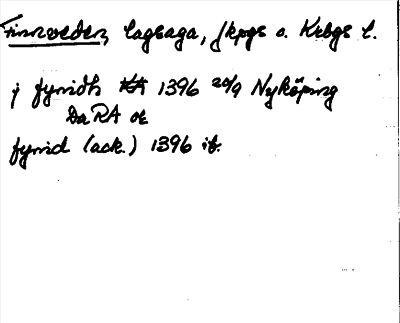 Finnveden, lagsaga, Jkpgs o. Krbgs l.
j fynidh RA 1396 20/9 Nyköping
Da RA or
fynid (ack.) 1396 ib.